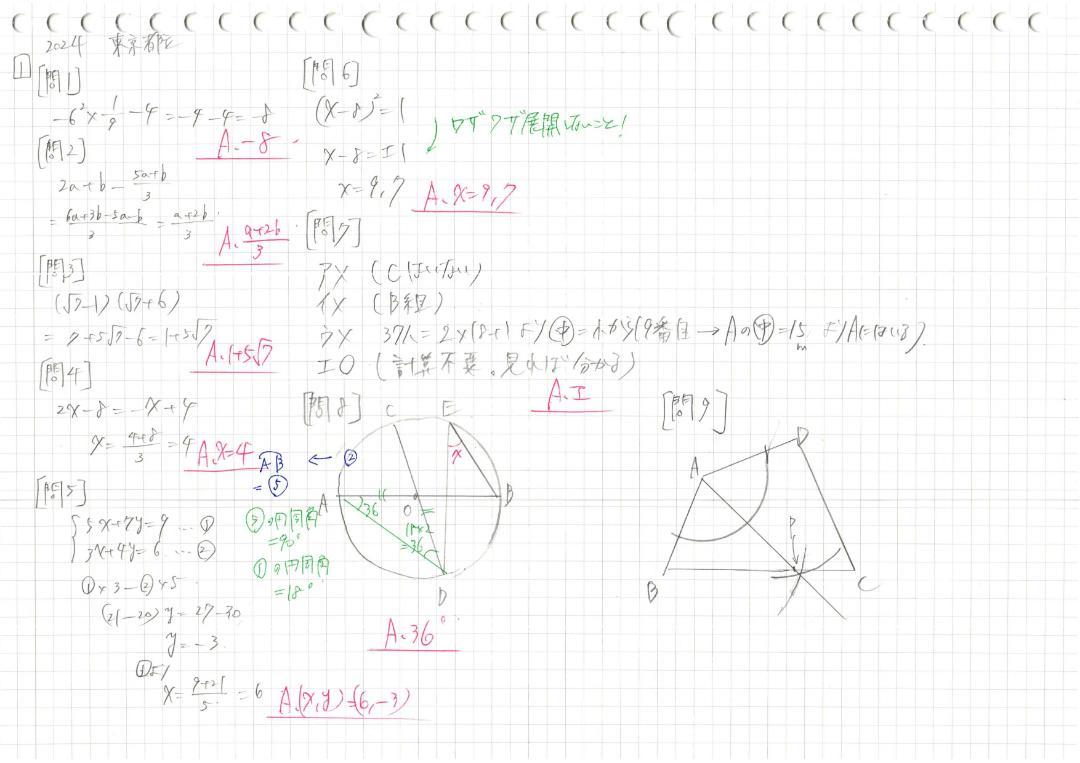 2024 東京都立
1
[問1]
-6²×1/9-4=-4-4=-8
A.-8
[問2]
2a+b-(5a+b)/3
=(6a+3b-5a-b)/3=(a+2b)/3
A.(a+2b)/3
[問3]
(√7-1)(√7+6)
=7+5√7-6=1+5√7
A.1+5√7
[問4]
2x-8=-x+4
x=(4+8)/3=4
A.x=4
[問5]
5x+7y=9 …①
3x+4y=6 …②
①×3-②×5
(21-20)y=27-30
y=-3
①より
x=(9+21)/5=6
A.(x,y)=(6,-3)
[問6]
(x-8)²=1
ワザワザ展開しないこと!
x-8=±1
x=9,7
A.x=9,7
[問7]
ア× (Cはいない)
イ× (B組)
ウ× 37人=2×18+1より㊥=小から19番目→Aの㊥=15mよりAにはいる).
エ○ (計算不要。見れば分かる)
A.エ
[問8]
C E
x
AB ← ②
=⑤
A 36 O B
18×2
=36
⑤の円周角
=90°
①の円周角
=18°
D
A.36°
[問9]
D
A
P
B C